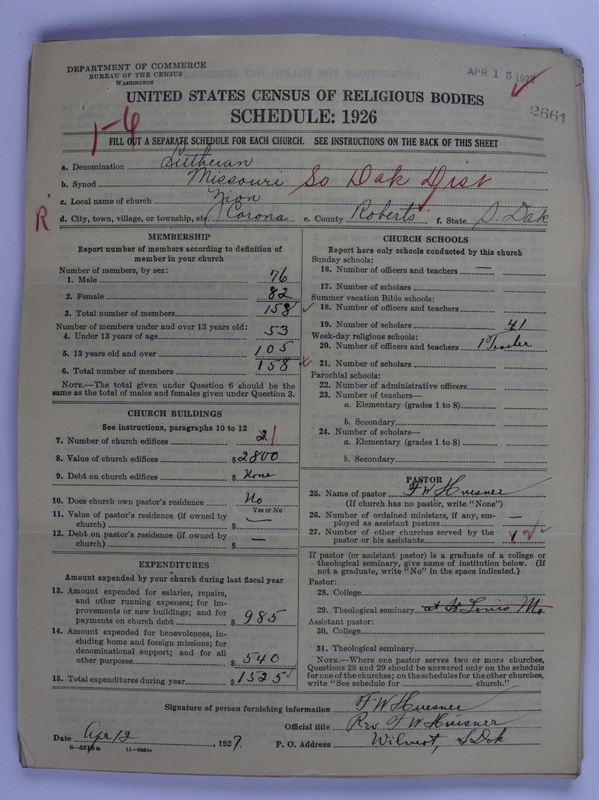 DEPARTMENT OF COMMERCE
BUREAU OF THE CENSUS
WASHINGTON
APR 15 1927
UNITED STATES CENSUS OF RELIGIOUS BODIES
SCHEDULE: 1926
2661
1-6
FILL OUT A SEPARATE SCHEDULE FOR EACH CHURCH. SEE INSTRUCTIONS ON THE BACK OF THIS SHEET
a. Denomination Lutheran
b. Synod Missouri So Dak Dist
c. Local name of church Zion
R
d. City, town, village, or township, etc. Corona e. County Roberts f. State S. Dak
MEMBERSHIP
Report number of members according to definition of member in your church
Number of members, by sex:
1. Male 76
2. Female 82
3. Total number of members 158
Number of members under and over 13 years old:
4. Under 13 years of age 53
5. 13 years old and over 105
6. Total number of members 158
NOTE.—The total given under Question 6 should be the same as the total of males and females given under Question 3.
CHURCH BUILDINGS
See instructions, paragraphs 10 to 12
7. Number of church edifices 2 1
8. Value of church edifices $2800
9. Debt on church edifices $ None
10. Does church own pastor's residence No
Yes or No
11. Value of pastor's residence (if owned by church) $ —
12. Debt on pastor's residence (if owned by church) $ —
EXPENDITURES
Amount expended by your church during last fiscal year
13. Amount expended for salaries, repairs, and other running expenses; for improvements or new buildings; and for payments on church debt $ 985
14. Amount expended for benevolences, including home and foreign missions; for denominational support; and for all other purposes $ 540
15. Total expenditures during year $ 1525
CHURCH SCHOOLS
Report here only schools conducted by this church
Sunday schools:
16. Number of officers and teachers —
17. Number of scholars
Summer vacation Bible schools:
18. Number of officers and teachers
19. Number of scholars 41
Week-day religious schools:
20. Number of officers and teachers 1 Teacher
21. Number of scholars
Parochial schools:
22. Number of administrative officers
23. Number of teachers—
a. Elementary (grades 1 to 8)
b. Secondary
24. Number of scholars—
a. Elementary (grades 1 to 8)
b. Secondary
PASTOR
25. Name of pastor F W Huesner
(If church has no pastor, write "None")
26. Number of ordained ministers, if any, employed as assistant pastors —
27. Number of other churches served by the pastor or his assistants
If pastor (or assistant pastor) is a graduate of a college or theological seminary, give name of institution below. (If not a graduate, write "No" in the space indicated.)
Pastor:
28. College
29. Theological seminary at St Louis Mo
Assistant pastor:
30. College
31. Theological seminary
NOTE.—Where one pastor serves two or more churches, Questions 28 and 29 should be answered only on the schedule for one of the churches; on the schedules for the other churches, write "See schedule for church."
Signature of person furnishing information F W Huesner
Official title Rev F W Huesner
Date Apr 12, 1927. P. O. Address Wilmot, S Dak